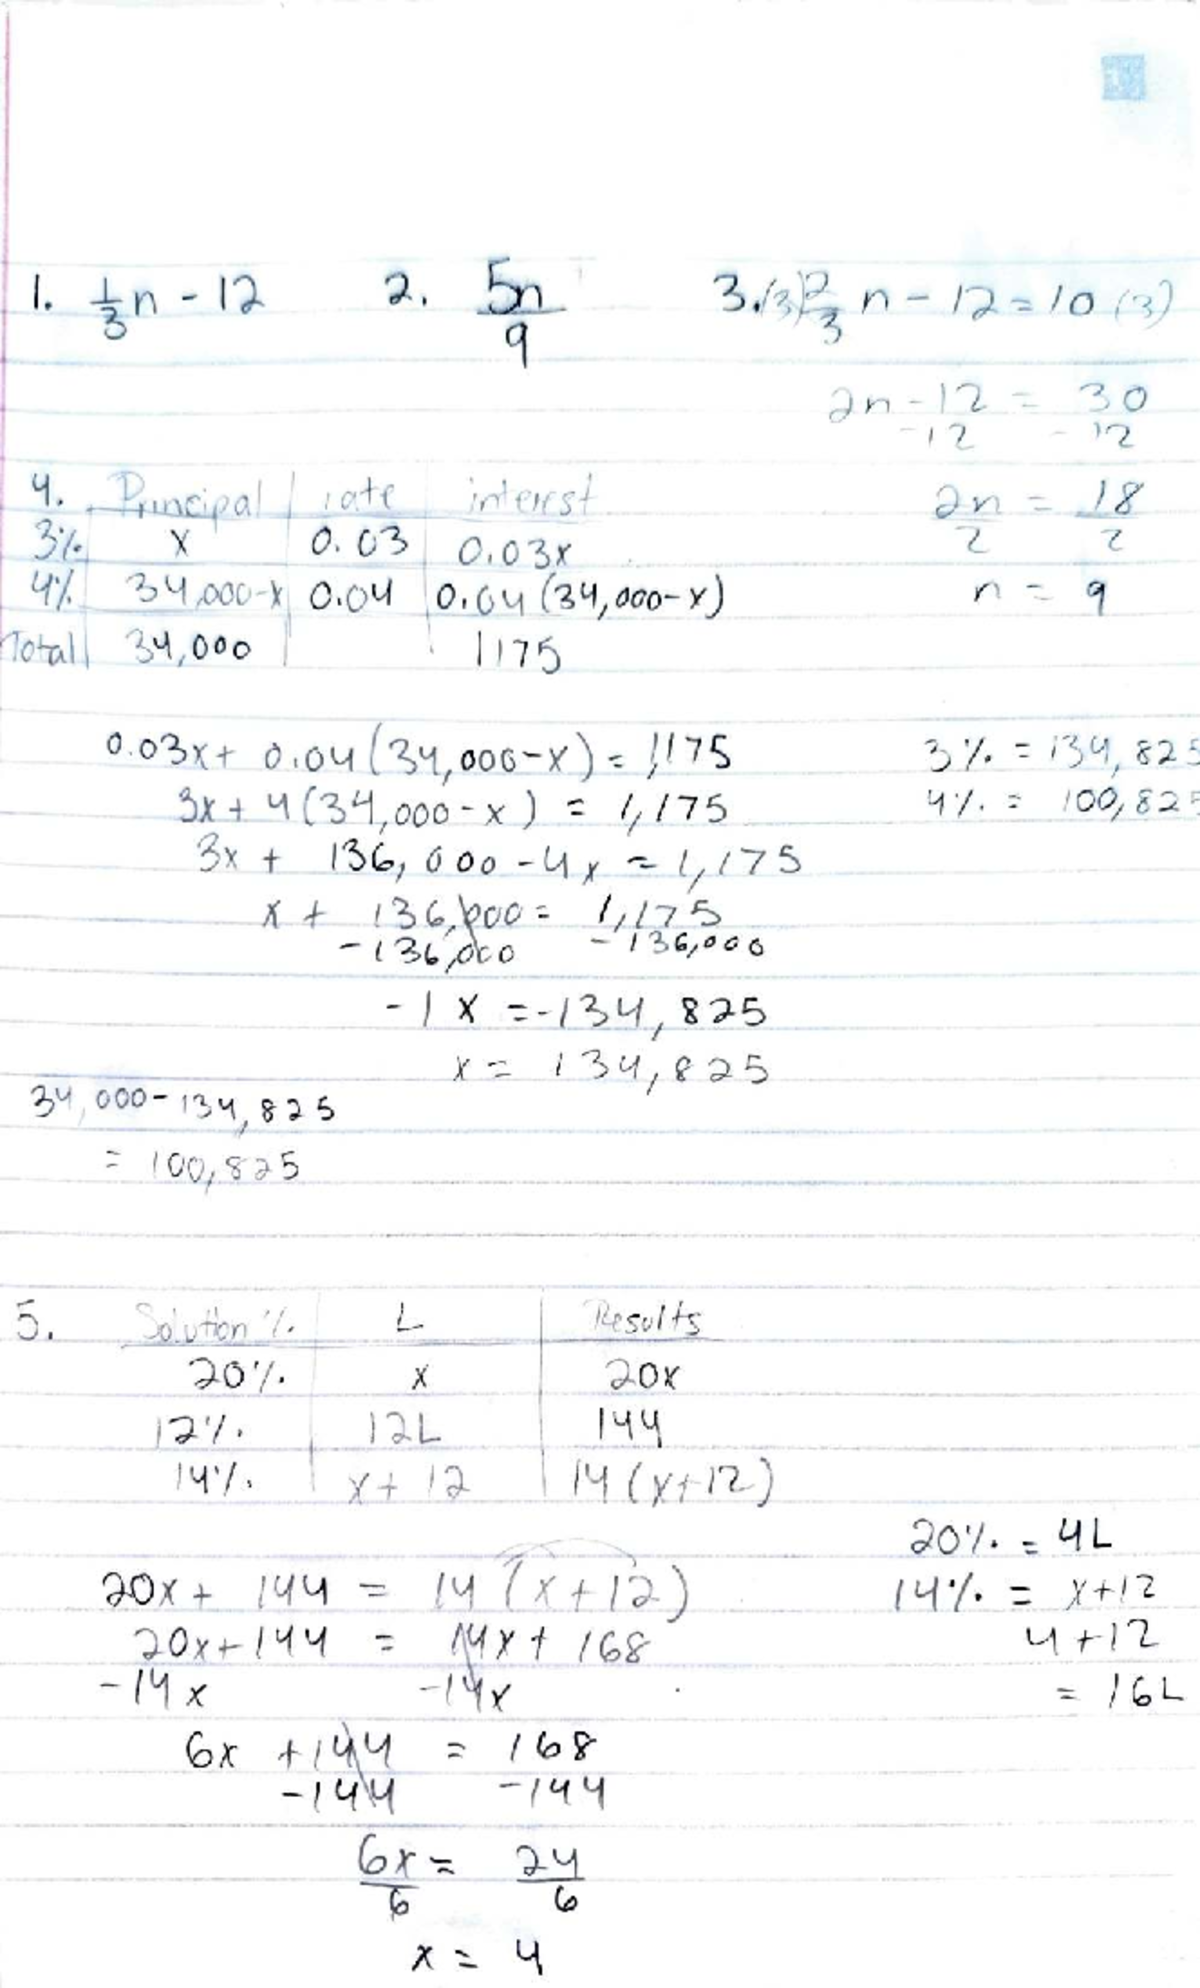 1. 1/3 n - 12    2. 5n/9    3. (3) 2/3 n - 12 = 10 (3)
2n - 12 = 30
-12 - 12
4. Principal | rate | interest
2n/2 = 18/2
3% | x | 0.03 | 0.03x
4% | 34,000-x | 0.04 | 0.04(34,000-x)
n = 9
Total | 34,000 | | 1175
0.03x + 0.04(34,000-x) = 1,175
3% = 134,825
3x + 4(34,000-x) = 1,175
4% = 100,825
3x + 136,000 - 4x = 1,175
x + 136,000 = 1,175
-136,000 -136,000
-1x = -134,825
x = 134,825
34,000 - 134,825
= 100,825
5. Solution % | L | Results
20% | x | 20x
12% | 12L | 144
14% | x + 12 | 14(x+12)
20% = 4L
20x + 144 = 14(x+12)
14% = x+12
20x + 144 = 14x + 168
4+12
-14x -14x
= 16L
6x + 144 = 168
-144 -144
6x/6 = 24/6
x = 4